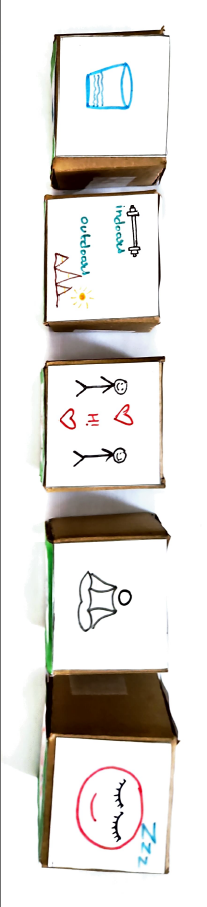 indoors
outdoors
Hi
Zzz